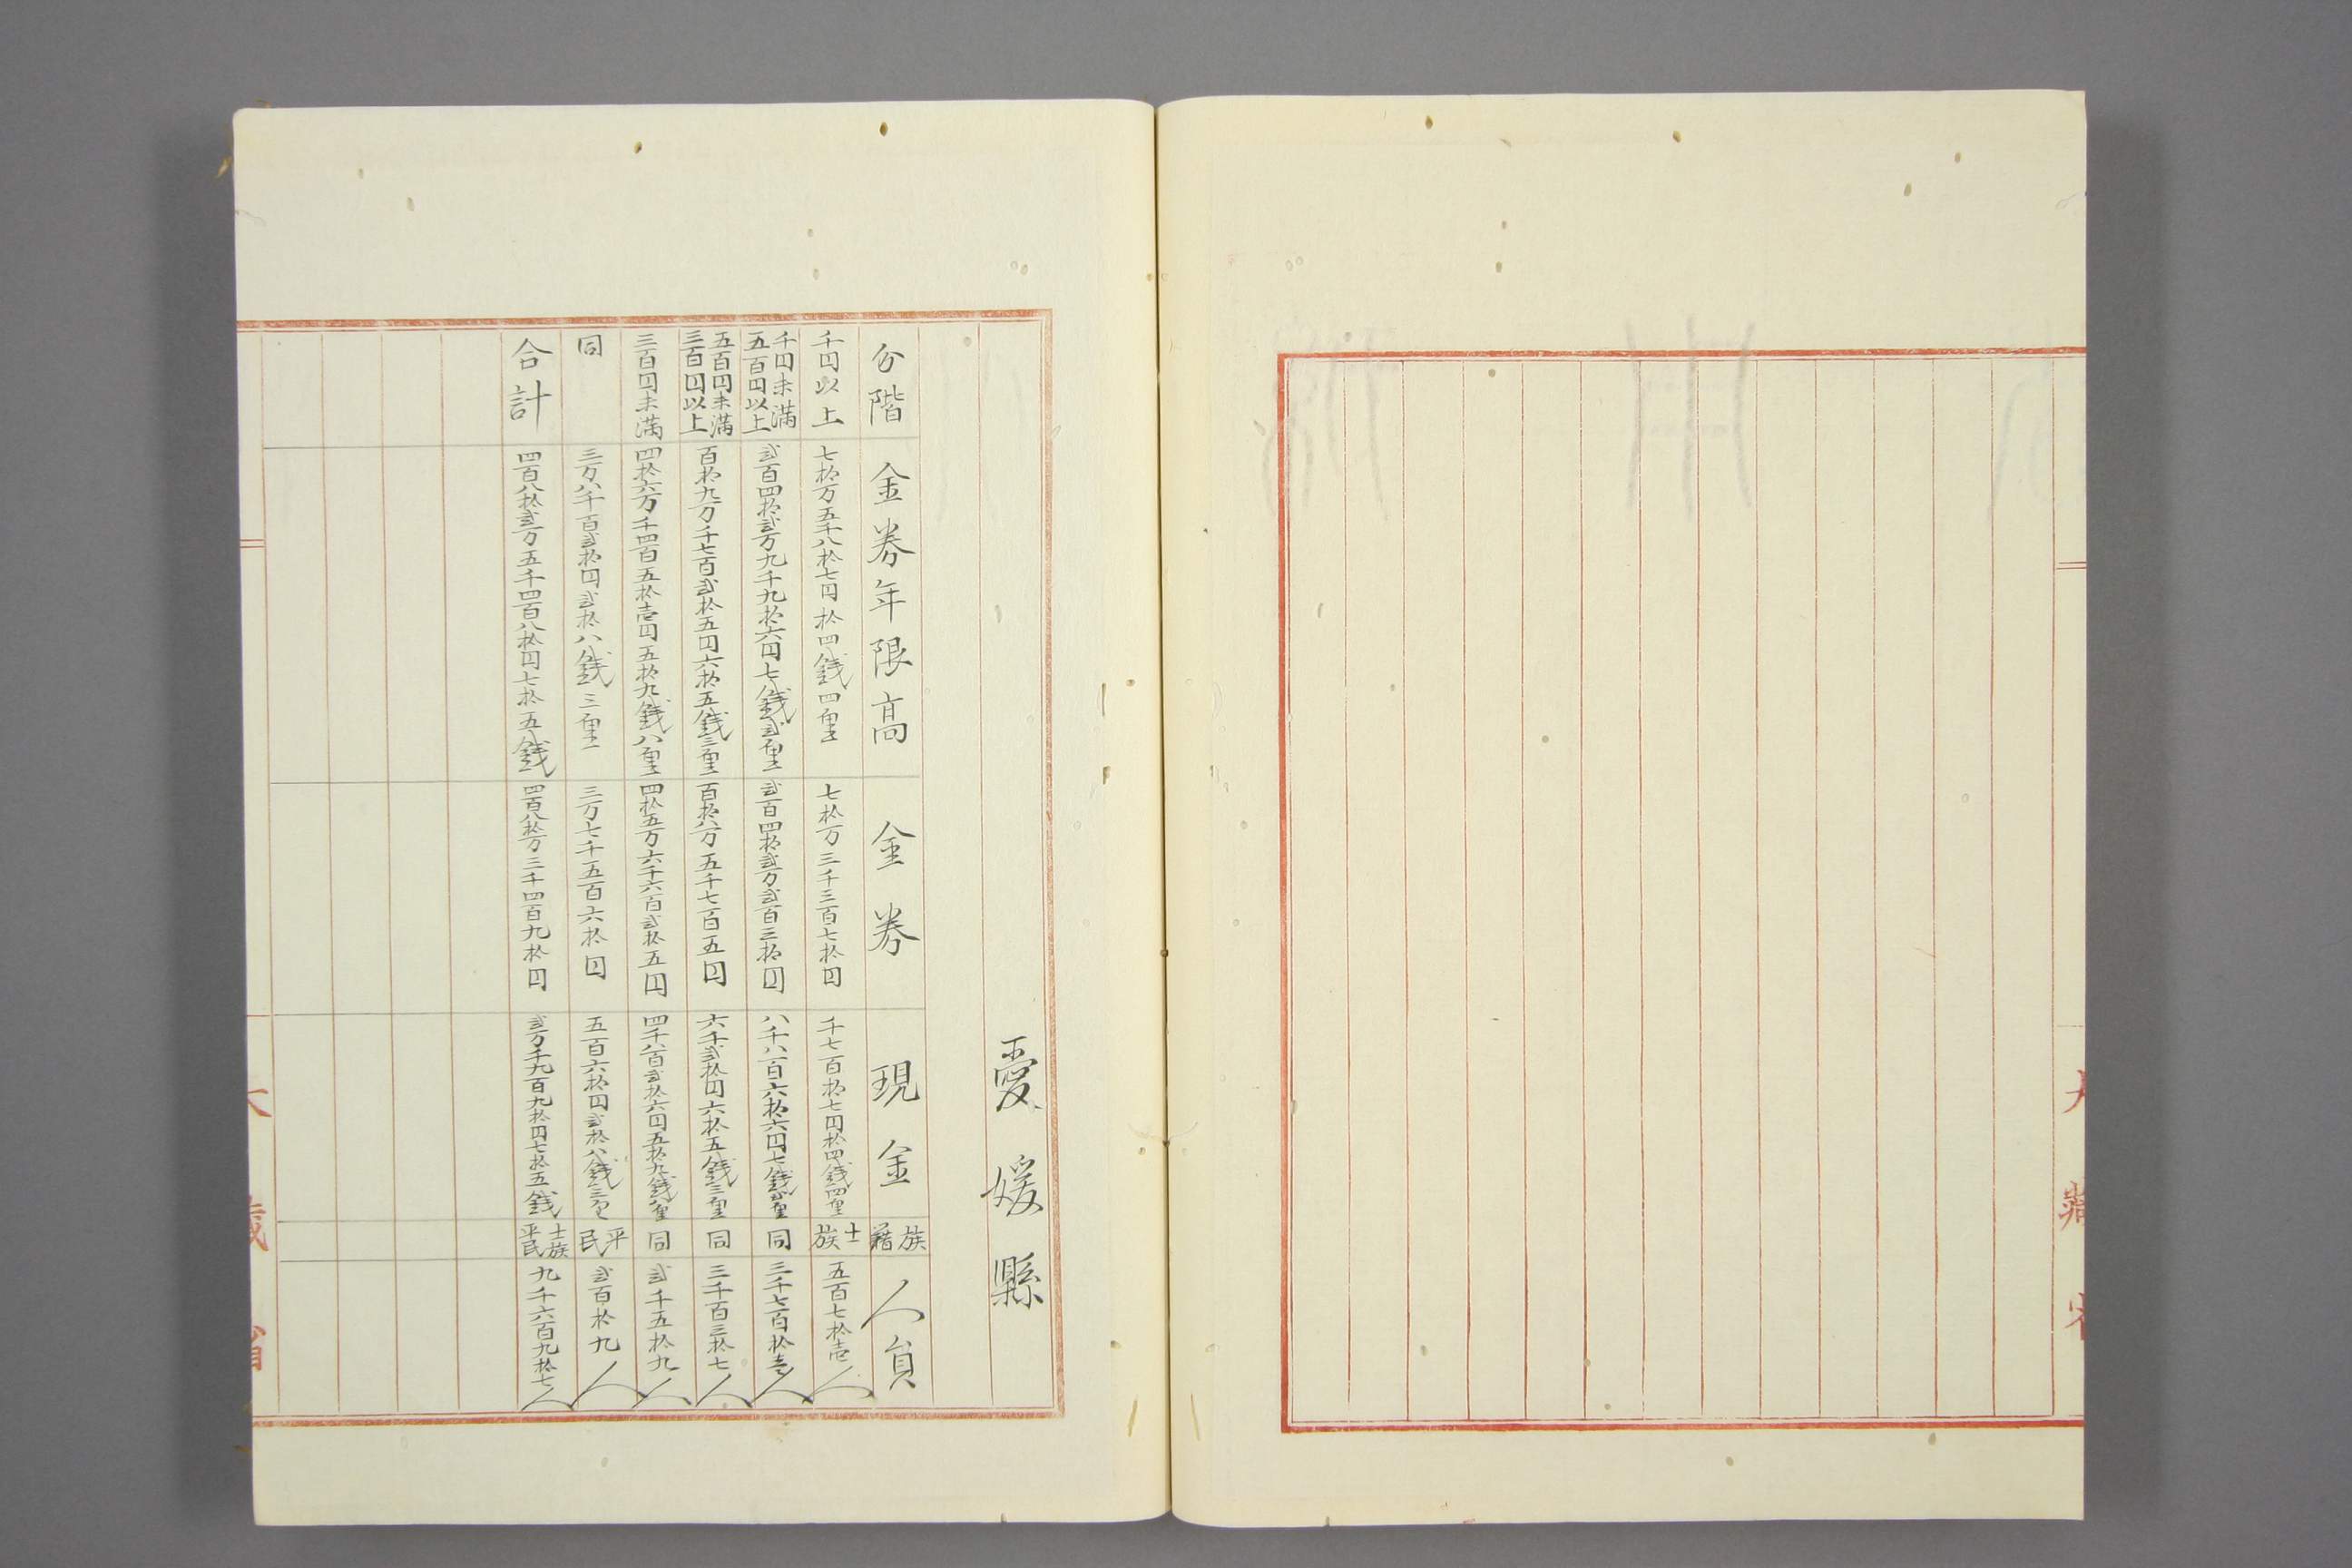 愛媛縣
分階 金券年限高 金券 現金 族籍 人員
千円以上 七拾万五千八拾七円拾四銭四厘 七拾万三千三百七拾円 千七百拾七円拾四銭四厘 士族 五百七拾壱人
千円未満五百円以上 弐百四拾弐万九千九拾六円七銭弐厘 弐百四拾弐万弐百三拾円 八千八百六拾六円七銭弐厘 同 三千七百拾壱人
五百円未満三百円以上 百拾九万千七百弐拾五円六拾五銭三厘 百拾八万五千七百五円 六千弐拾円六拾五銭三厘 同 三千百三拾七人
三百円未満 四拾六万千四百五拾壱円五拾九銭八厘 四拾五万六千六百弐拾五円 四千八百弐拾六円五拾九銭八厘 同 弐千五拾九人
同 三万八千百弐拾円弐拾八銭三厘 三万七千五百六拾円 五百六拾円弐拾八銭三厘 平民 弐百拾九人
合計 四百八拾弐万五千四百八拾円七拾五銭 四百八拾万三千四百九拾円 弐万千九百九拾円七拾五銭 士族平民 九千六百九拾七人
大藏省